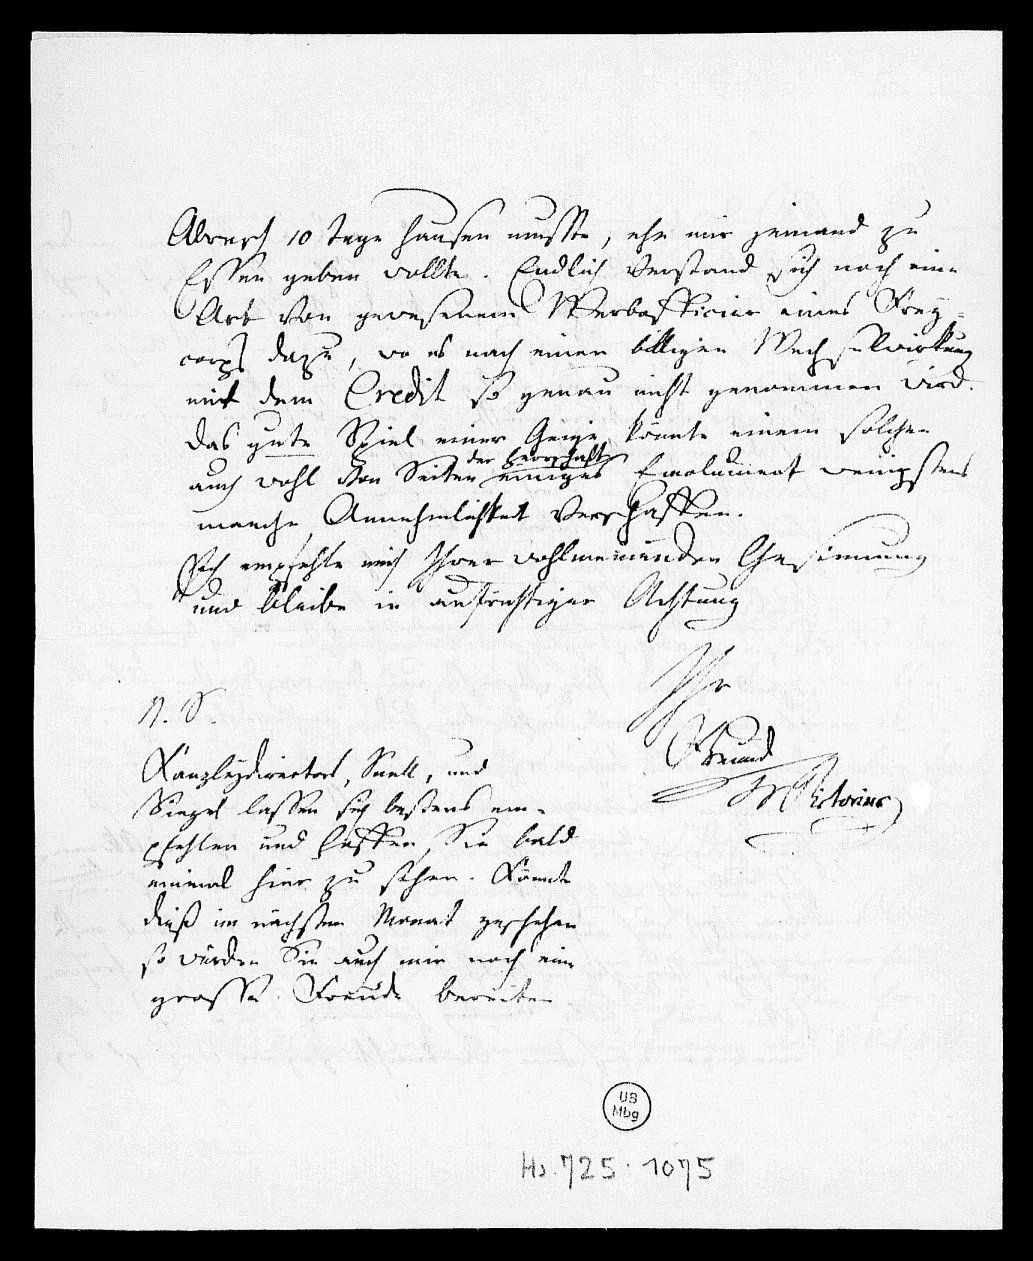 Albrecht 10 Tage hausen musste, ehe mir jemand zu
Essen geben wollte. Endlich verstand sich noch eine
Art von gewesenem Werbofficier eines Frey-
corps dazu, wo es nach einer billigen Wechselwirkung
mit dem Credit so genau nicht genommen wird.
Das gute Spiel einer Geige könnte einem solchen
der Herrschaft
auch wohl von Seiten einiges Emolument wenigstens
manche Annehmlichkeit verschaffen.
Ich empfehle mich Ihrer wohlmeinenden Gesinnung
und bleibe in aufrichtiger Achtung
Ihr
Freund
Pistorius
N. S.
Kanzleydirector, Snell, und
Siegel lassen sich bestens em-
pfehlen und hoffen Sie bald
einmal hier zu sehen. Könnte
dieß im nächsten Monat geschehen
so würden Sie auch mir noch eine
grosse Freude bereiten
UB
Mbg
Hs. 725 : 1075